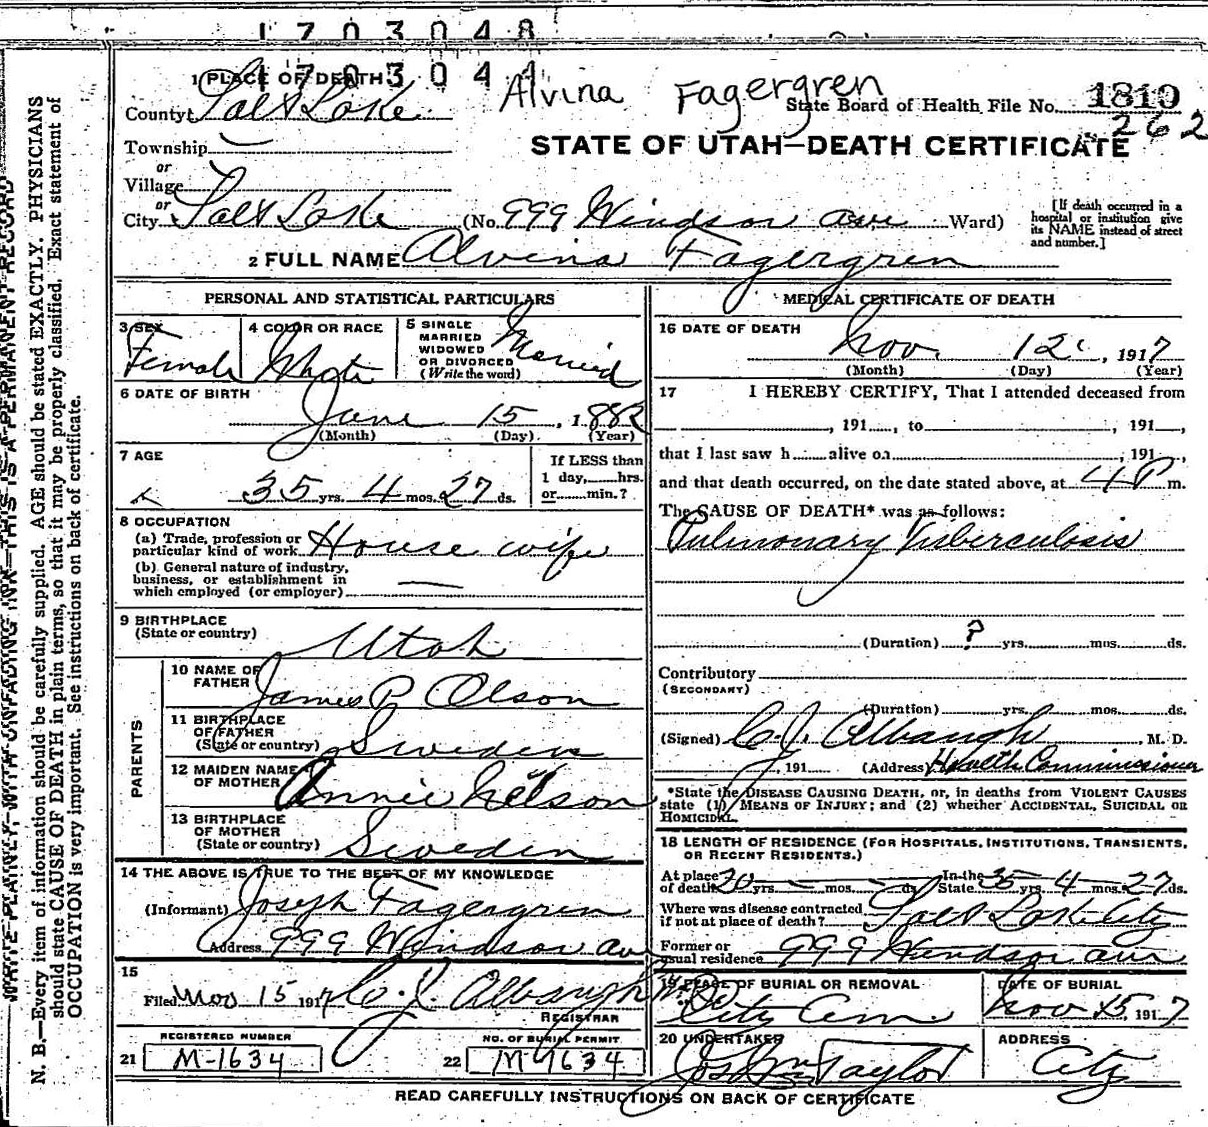 1 7 0 3 0 4 8
1 7 0 3 0 4 1
Alvina Fagergren
1 PLACE OF DEATH
County Salt Lake
State Board of Health File No. 1810
262
STATE OF UTAH—DEATH CERTIFICATE
Township
or
Village
or
City Salt Lake (No. 999 Windsor ave Ward)
[If death occurred in a
hospital or institution give
its NAME instead of street
and number.]
2 FULL NAME Alvina Fagergren
PERSONAL AND STATISTICAL PARTICULARS
3 SEX
Female
4 COLOR OR RACE
White
5 SINGLE
MARRIED
WIDOWED
OR DIVORCED
(Write the word)
Married
6 DATE OF BIRTH
June 15, 1882
(Month) (Day) (Year)
7 AGE
35 yrs. 4 mos. 27 ds.
If LESS than
1 day, hrs.
or min.?
8 OCCUPATION
(a) Trade, profession or
particular kind of work House wife
(b) General nature of industry,
business, or establishment in
which employed (or employer)
9 BIRTHPLACE
(State or country) Utah
PARENTS
10 NAME OF
FATHER James P Olson
11 BIRTHPLACE
OF FATHER
(State or country) Sweden
12 MAIDEN NAME
OF MOTHER Annie Nelson
13 BIRTHPLACE
OF MOTHER
(State or country) Sweden
14 THE ABOVE IS TRUE TO THE BEST OF MY KNOWLEDGE
(Informant) Joseph Fagergren
Address 999 Windsor av
15
Filed Nov 15 1917 C. J. Albaugh
REGISTRAR
REGISTERED NUMBER
21 M-1634
NO. OF BURIAL PERMIT
22 M-1634
MEDICAL CERTIFICATE OF DEATH
16 DATE OF DEATH
Nov. 12, 1917
(Month) (Day) (Year)
17 I HEREBY CERTIFY, That I attended deceased from
, 191 , to , 191 ,
that I last saw h alive on , 191 ,
and that death occurred, on the date stated above, at 4 P m.
The CAUSE OF DEATH* was as follows:
Pulmonary Tuberculosis
(Duration) ? yrs. mos. ds.
Contributory
(SECONDARY)
(Duration) yrs. mos. ds.
(Signed) C. J. Albaugh, M. D.
, 191 (Address) Health Commissioner
*State the DISEASE CAUSING DEATH, or, in deaths from VIOLENT CAUSES
state (1) MEANS OF INJURY; and (2) whether ACCIDENTAL, SUICIDAL OR
HOMICIDAL.
18 LENGTH OF RESIDENCE (FOR HOSPITALS, INSTITUTIONS, TRANSIENTS,
OR RECENT RESIDENTS.)
At place
of death 20 yrs. — mos. — ds. In the
State 35 yrs. 4 mos. 27 ds.
Where was disease contracted
if not at place of death? Salt Lake City
Former or
usual residence 999 Windsor ave
19 PLACE OF BURIAL OR REMOVAL
City Cem.
DATE OF BURIAL
Nov 15, 1917
20 UNDERTAKER
Jos Wm Taylor
ADDRESS
City
READ CAREFULLY INSTRUCTIONS ON BACK OF CERTIFICATE
WRITE PLAINLY, WITH UNFADING INK—THIS IS A PERMANENT RECORD
N. B.—Every item of information should be carefully supplied. AGE should be stated EXACTLY. PHYSICIANS
should state CAUSE OF DEATH in plain terms, so that it may be properly classified. Exact statement of
OCCUPATION is very important. See instructions on back of certificate.